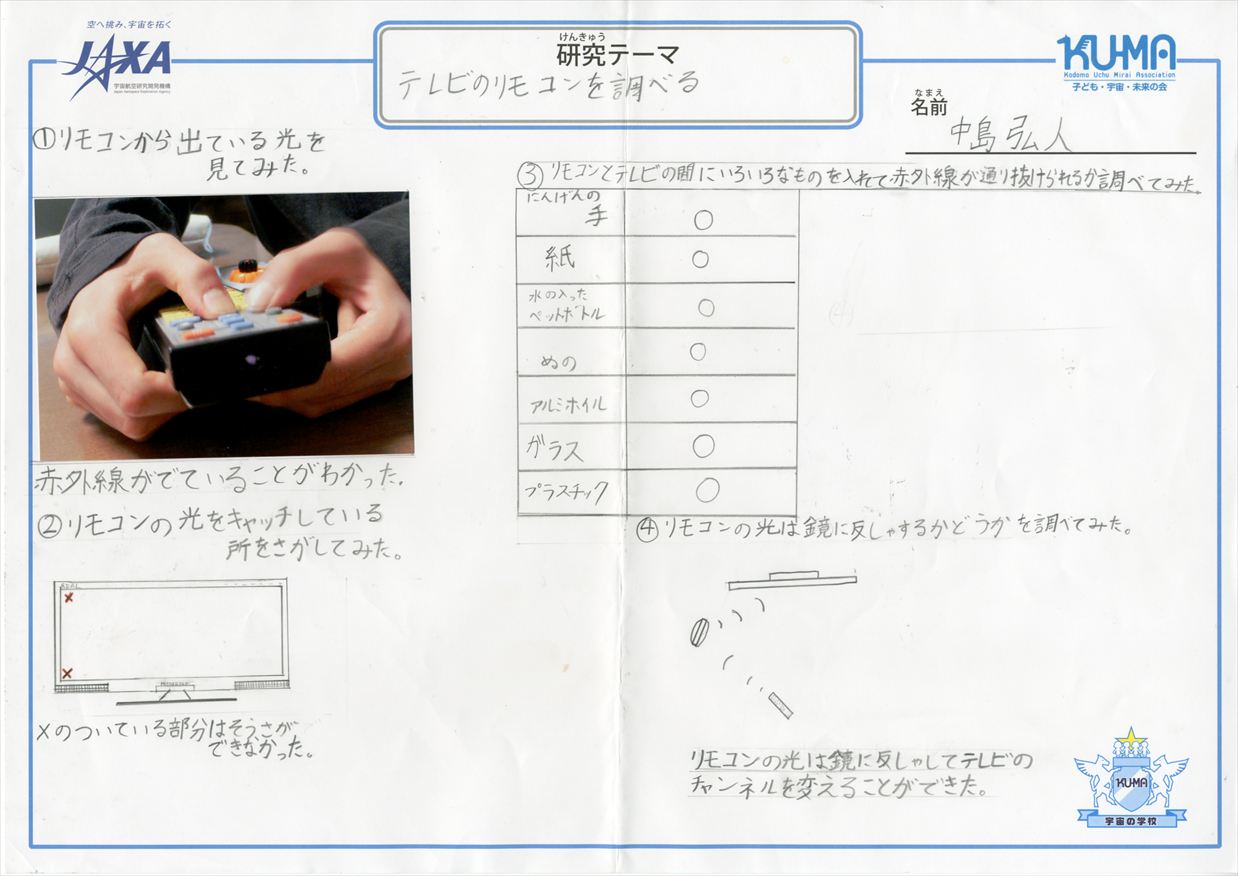 空へ挑み、宇宙を拓く
JAXA
宇宙航空研究開発機構
Japan Aerospace Exploration Agency
けんきゅう
研究テーマ
テレビのリモコンを調べる
KU-MA
Kodomo Uchu Mirai Association
子ども・宇宙・未来の会
なまえ
名前
中島弘人
①リモコンから出ている光を
見てみた。
赤外線がでていることがわかった。
②リモコンの光をキャッチしている
所をさがしてみた。
×
×
×のついている部分はそうさが
できなかった。
③リモコンとテレビの間にいろいろなものを入れて赤外線が通り抜けられるか調べてみた。
にんげんの
手 ○
紙 ○
水の入った
ペットボトル ○
ぬの ○
アルミホイル ○
ガラス ○
プラスチック ○
④リモコンの光は鏡に反しゃするかどうかを調べてみた。
リモコンの光は鏡に反しゃしてテレビの
チャンネルを変えることができた。
KU-MA
宇宙の学校